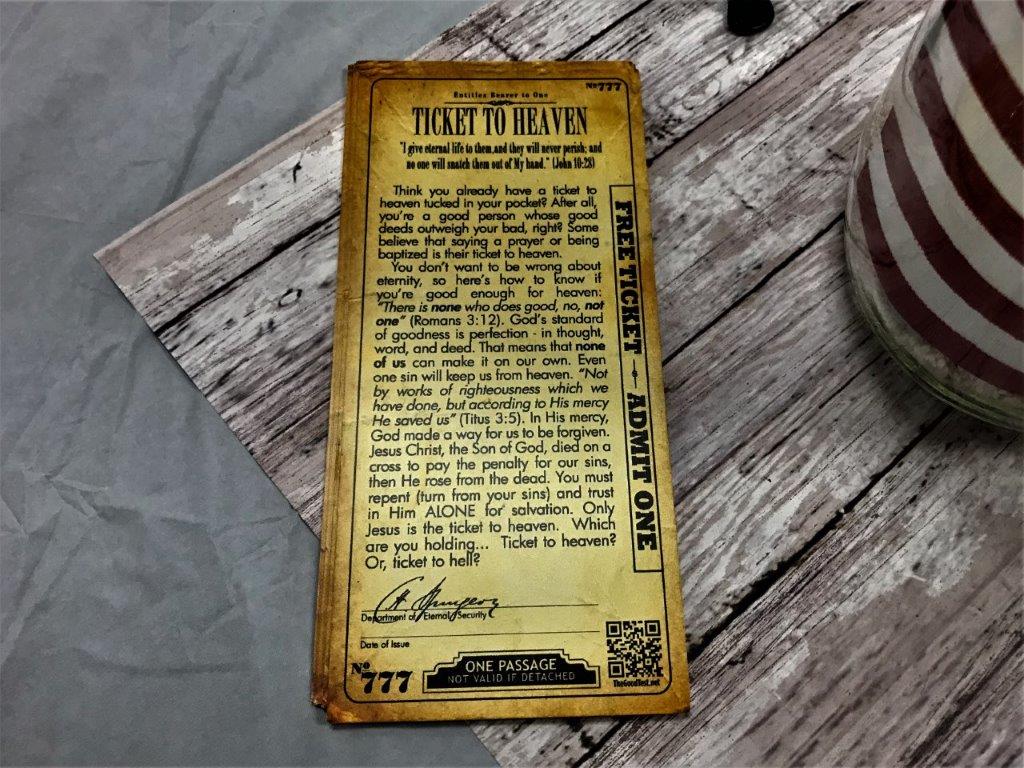 Nº 777
Entitles Bearer to One
TICKET TO HEAVEN
"I give eternal life to them, and they will never perish; and
no one will snatch them out of My hand." (John 10:28)
Think you already have a ticket to
heaven tucked in your pocket? After all,
you're a good person whose good
deeds outweigh your bad, right? Some
believe that saying a prayer or being
baptized is their ticket to heaven.
You don't want to be wrong about
eternity, so here's how to know if
you're good enough for heaven:
"There is none who does good, no, not
one" (Romans 3:12). God's standard
of goodness is perfection - in thought,
word, and deed. That means that none
of us can make it on our own. Even
one sin will keep us from heaven. "Not
by works of righteousness which we
have done, but according to His mercy
He saved us" (Titus 3:5). In His mercy,
God made a way for us to be forgiven.
Jesus Christ, the Son of God, died on a
cross to pay the penalty for our sins,
then He rose from the dead. You must
repent (turn from your sins) and trust
in Him ALONE for salvation. Only
Jesus is the ticket to heaven. Which
are you holding... Ticket to heaven?
Or, ticket to hell?
FREE TICKET - ADMIT ONE
C H Spurgeon
Department of Eternal Security
Date of Issue
Nº 777
ONE PASSAGE
NOT VALID IF DETACHED
TheGoodTest.net